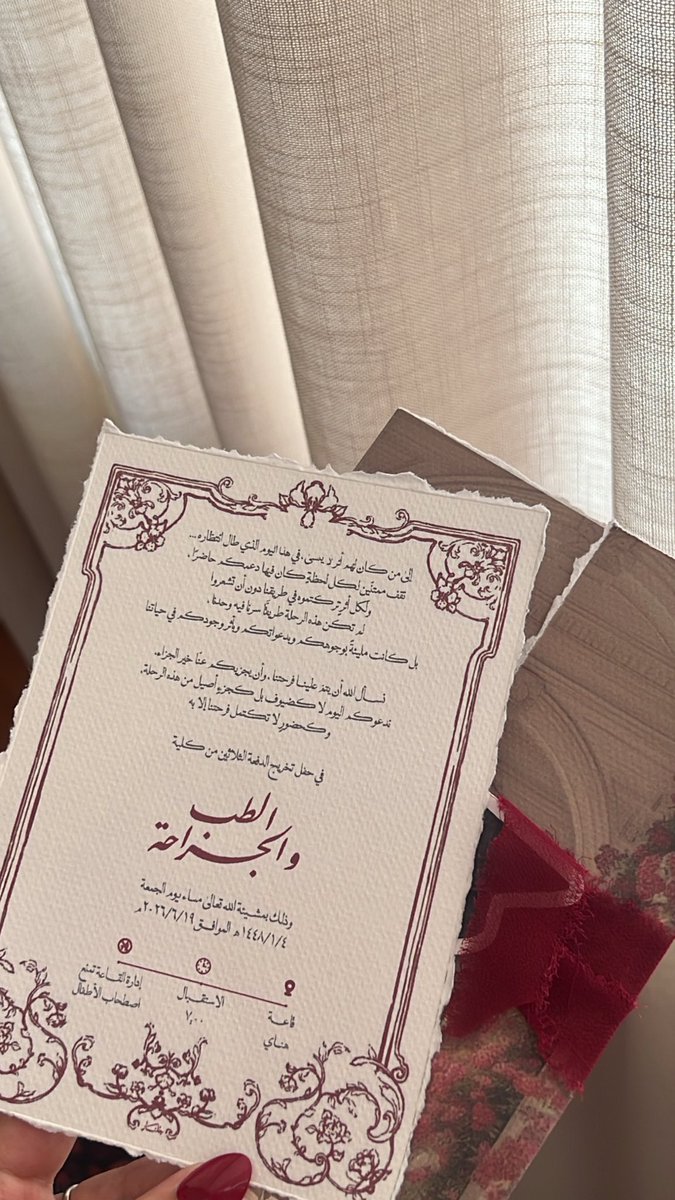 إلى من كان لهم أثر لا يُنسى، في هذا اليوم الذي طال انتظاره ...
نقف ممتنّين لكل لحظة كان فيها دعمكم حاضرًا،
ولكل أثر تركتموه في طريقنا دون أن تشعروا
لم تكن هذه الرحلة طريقًا سرنا فيه وحدنا،
بل كانت مليئةً بوجوهكم وبدعواتكم وبأثر وجودكم في حياتنا
نسأل الله أن يتم علينا فرحتنا، وأن يجزيكم عنّا خير الجزاء.
ندعوكم اليوم لا كضيوف بل كجزءٍ أصيل من هذه الرحلة،
وكحضورٍ لا تكتمل فرحتنا إلا به
في حفل تخريج الدفعة الثلاثين من كلية
الطب
والجراحة
وذلك بمشيئة الله تعالى مساء يوم الجمعة
١٤٤٨/١/٤ هـ الموافق ٢٠٢٦/٦/١٩ م
قاعة
هناي
الاستقبال
٧,٠٠
إدارة القاعة تمنع
اصطحاب الأطفال